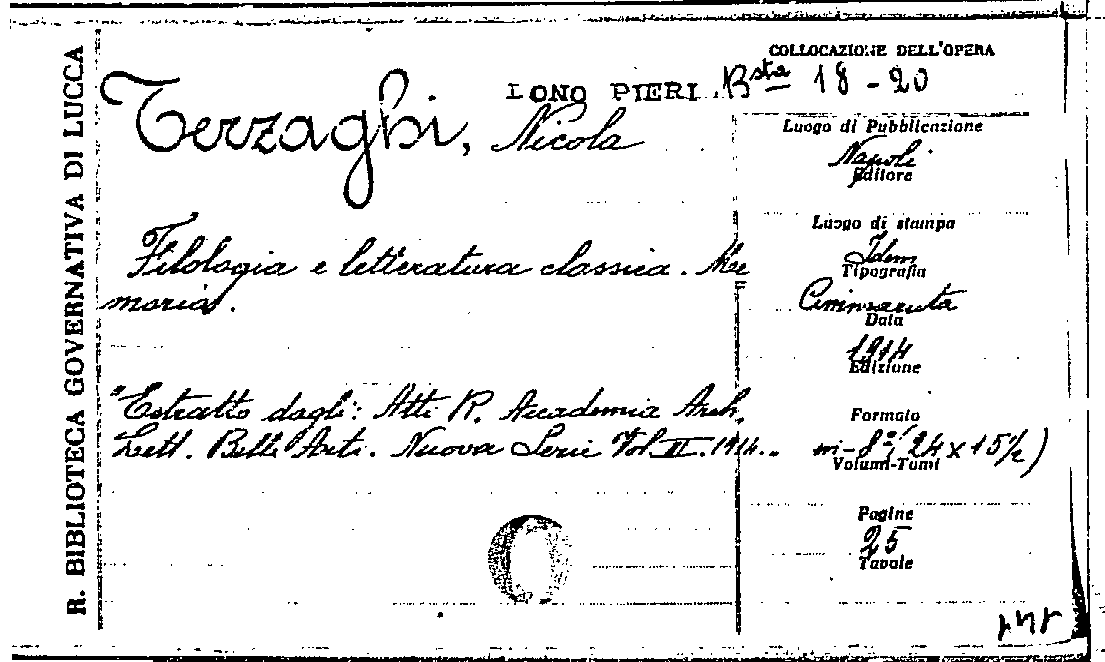 R. BIBLIOTECA GOVERNATIVA DI LUCCA
COLLOCAZIONE DELL'OPERA
LONO PIERI Bsta 18-20
Terzaghi, Nicola
Filologia e letteratura classica. Me
moria.
"Estratto dagli: Atti R. Accademia Arch.
Lett. Belle Arti. Nuova Serie Vol II. 1914.
Luogo di Pubblicazione
Napoli
Editore
Luogo di stampa
Idem
Tipografia
Cimmaruta
Data
1914
Edizione
Formato
in-8° (24x15½)
Volumi-Tomi
Pagine
25
Tavole